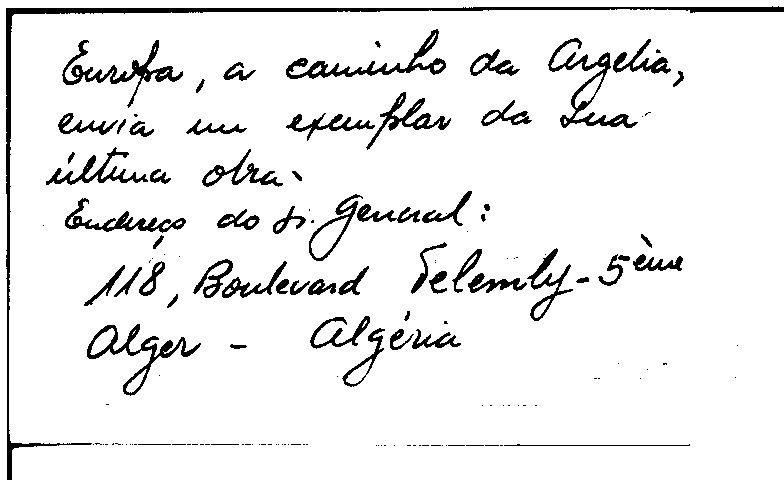 Europa, a caminho da Argelia,
envia um exemplar da sua
última obra.
Endereço do Sr. General:
118, Boulevard Telemly - 5ème
Alger - Algéria